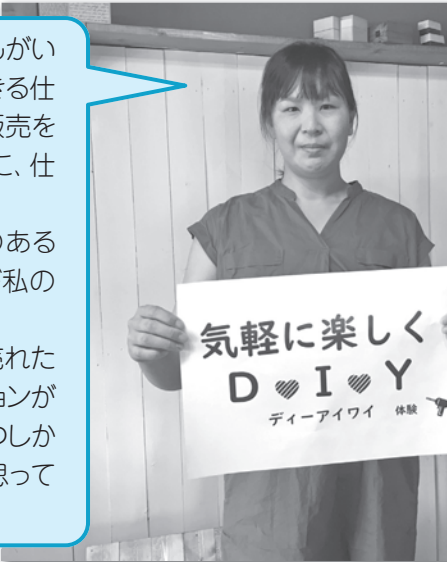 がい
きる仕
販売を
に、仕
のある
私の
売れた
ョンが
つしか
思って
気軽に楽しく
D I Y
ディーアイワイ 体験